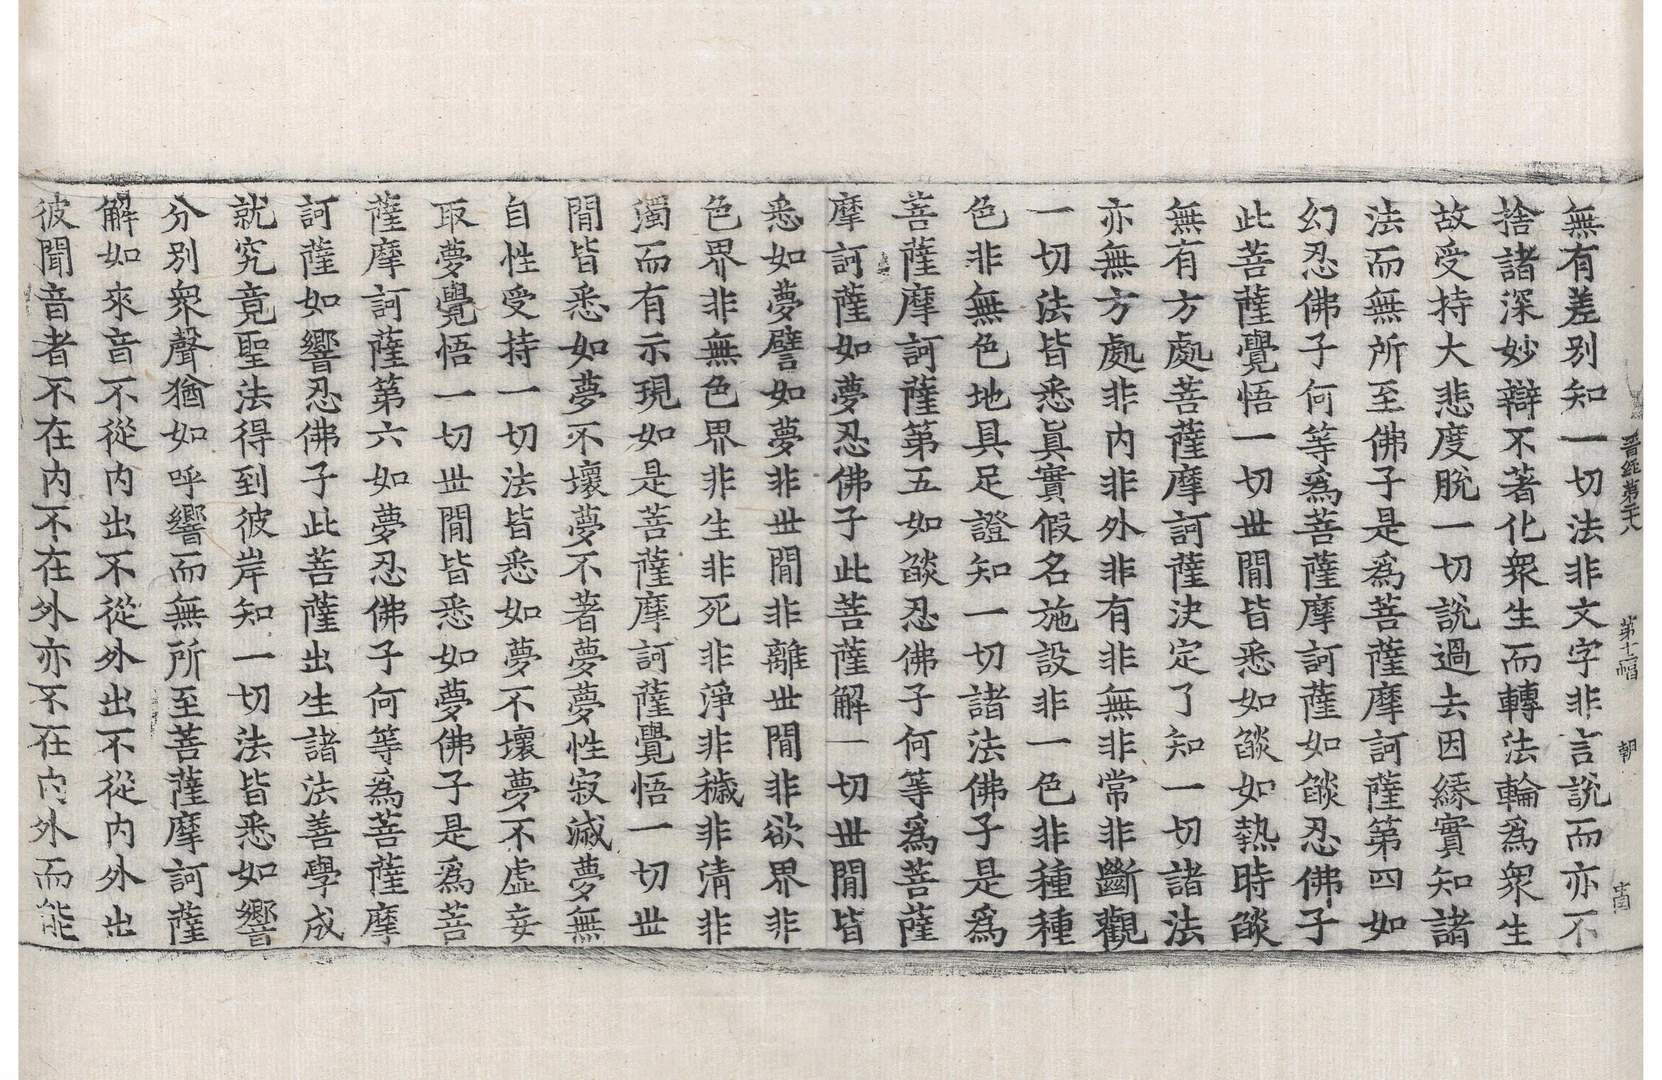 晉經第二十八 朝
無有差別知一切法非文字非言說而亦不
捨諸深妙辯不著化衆生而轉法輪爲衆生
故受持大悲度脫一切說過去因緣實知諸
法而無所至佛子是爲菩薩摩訶薩第四如
幻忍佛子何等爲菩薩摩訶薩如燄忍佛子
此菩薩覺悟一切世閒皆悉如燄如熱時燄
無有方處菩薩摩訶薩決定了知一切諸法
亦無方處非內非外非有非無非常非斷觀
一切法皆悉眞實假名施設非一色非種種
色非無色地具足證知一切諸法佛子是爲
菩薩摩訶薩第五如燄忍佛子何等爲菩薩
摩訶薩如夢忍佛子此菩薩解一切世閒皆
悉如夢譬如夢非世閒非離世閒非欲界非
色界非無色界非生非死非淨非穢非清非
濁而有示現如是菩薩摩訶薩覺悟一切世
閒皆悉如夢不壞夢不著夢夢性寂滅夢無
自性受持一切法皆悉如夢不壞夢不虛妄
取夢覺悟一切世閒皆悉如夢佛子是爲菩
薩摩訶薩第六如夢忍佛子何等爲菩薩摩
訶薩如響忍佛子此菩薩出生諸法善學成
就究竟聖法得到彼岸知一切法皆悉如響
分別衆聲猶如呼響而無所至菩薩摩訶薩
解如來音不從內出不從外出不從內外出
彼聞音者不在內不在外亦不在內外而能